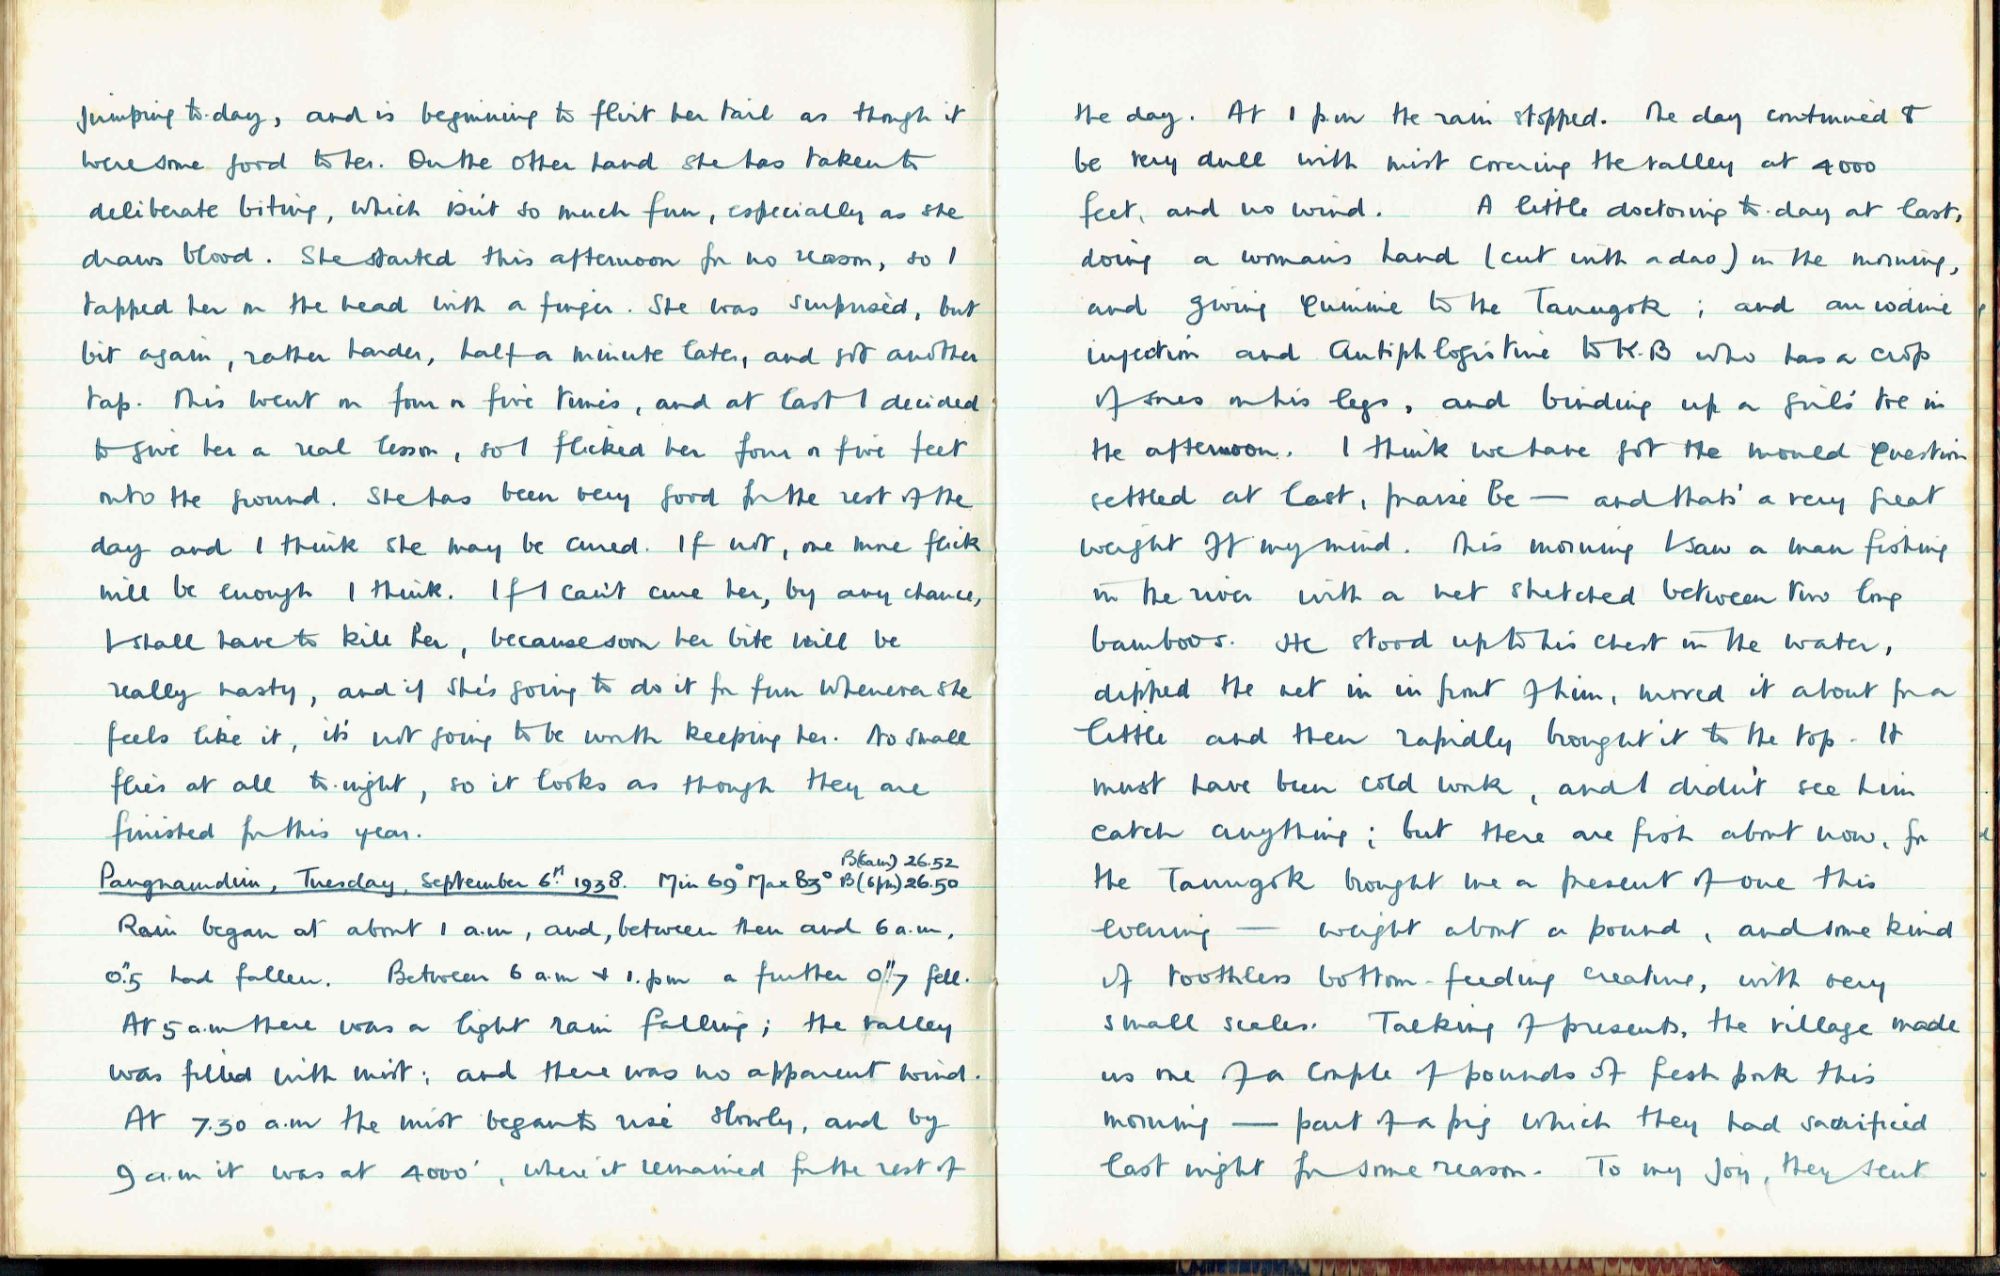 jumping to-day, and is beginning to flirt her tail as though it
were some good to her. On the other hand she has taken to
deliberate biting, which isn't so much fun, especially as she
draws blood. She started this afternoon for no reason, so I
tapped her on the head with a finger. She was surprised, but
bit again, rather harder, half a minute later, and got another
tap. This went on four or five times, and at last I decided
to give her a real lesson, so I flicked her four or five feet
onto the ground. She has been very good for the rest of the
day and I think she may be cured. If not, one more flick
will be enough I think. If I can't cure her, by any chance,
I shall have to kill her, because soon her bite will be
really nasty, and if she's going to do it for fun whenever she
feels like it, it's not going to be worth keeping her. No small
flies at all to-night, so it looks as though they are
finished for this year.
B(6am) 26.52
Pangnamdim, Tuesday, September 6th 1938. Min 69° Max 83° B(6pm) 26.50
Rain began at about 1 a.m, and, between then and 6 a.m,
0".5 had fallen. Between 6 a.m & 1. pm a further 0".7 fell.
At 5 a.m there was a light rain falling; the valley
was filled with mist; and there was no apparent wind.
At 7.30 a.m the mist began to rise slowly, and by
9 a.m it was at 4000', where it remained for the rest of
the day. At 1 pm the rain stopped. The day continued to
be very dull with mist covering the valley at 4000
feet, and no wind. A little doctoring to-day at last,
doing a woman's hand (cut with a dao) in the morning,
and giving quinine to the Taungok; and an iodine
injection and Antiphlogistine to K.B who has a crop
of sores on his legs, and binding up a girl's toe in
the afternoon. I think we have got the question
settled at last, praise be — and that's a very great
weight off my mind. This morning I saw a man fishing
in the river with a net stretched between two long
bamboos. He stood up to his chest in the water,
dipped the net in in front of him, moved it about for a
little and then rapidly brought it to the top. It
must have been cold work, and I didn't see him
catch anything; but there are fish about now, for
the Taungok brought me a present of one this
evening — weight about a pound, and some kind
of toothless bottom-feeding creature, with very
small scales. Talking of presents, the village made
us one of a couple of pounds of fresh pork this
morning — part of a pig which they had sacrificed
last night for some reason. To my joy, they sent